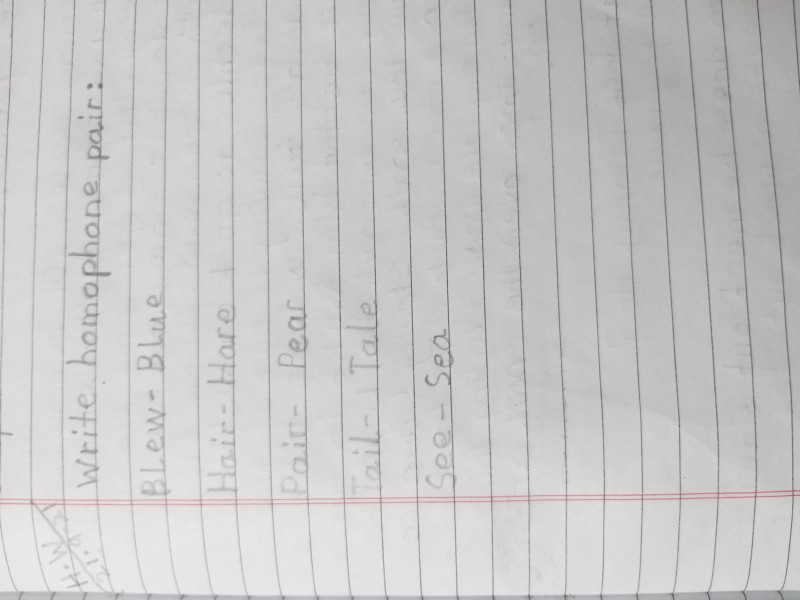 H.W
Write homophone pair:
Blew - Blue
Hair - Hare
Pair - Pear
Tail - Tale
See - Sea